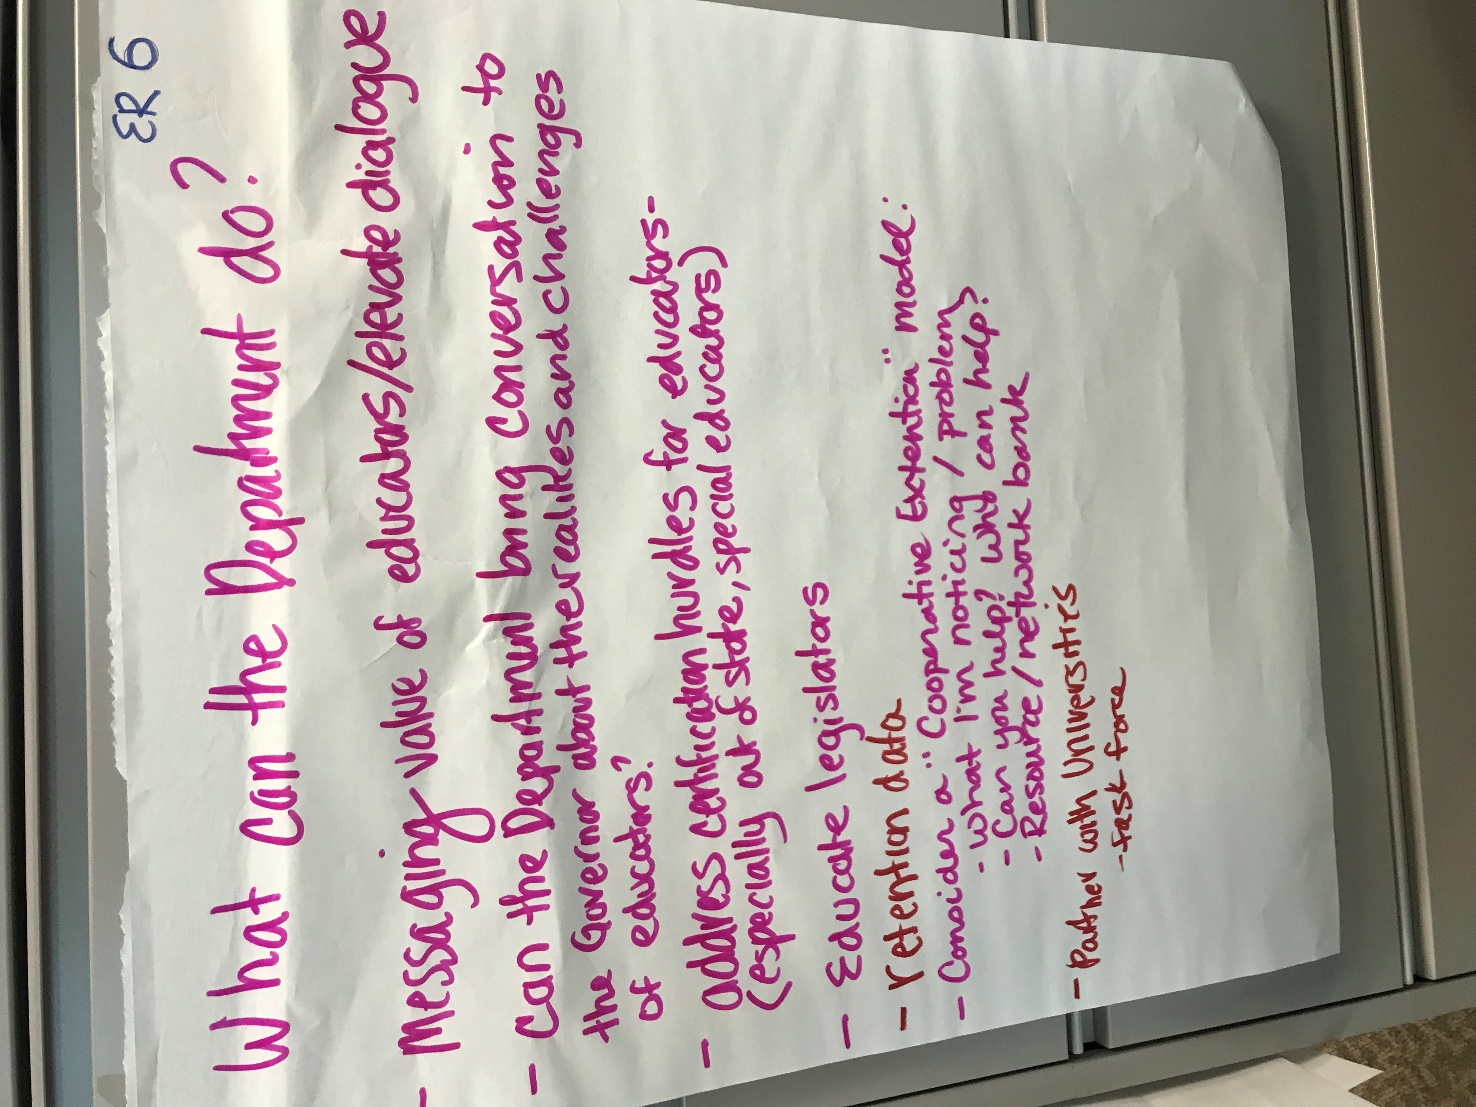 ER 6
What can the Department do?
- Messaging value of educators/elevate dialogue
- Can the Department bring conversation to
the Governor about the realities and challenges
of educators?
- address certification hurdles for educators-
(especially out of state, special educators)
- Educate legislators
- retention data
- Consider a "Cooperative Extention" model:
- What I'm noticing / problem
- Can you help? Who can help?
- Resource/network bank
- Partner with Universities
- task force